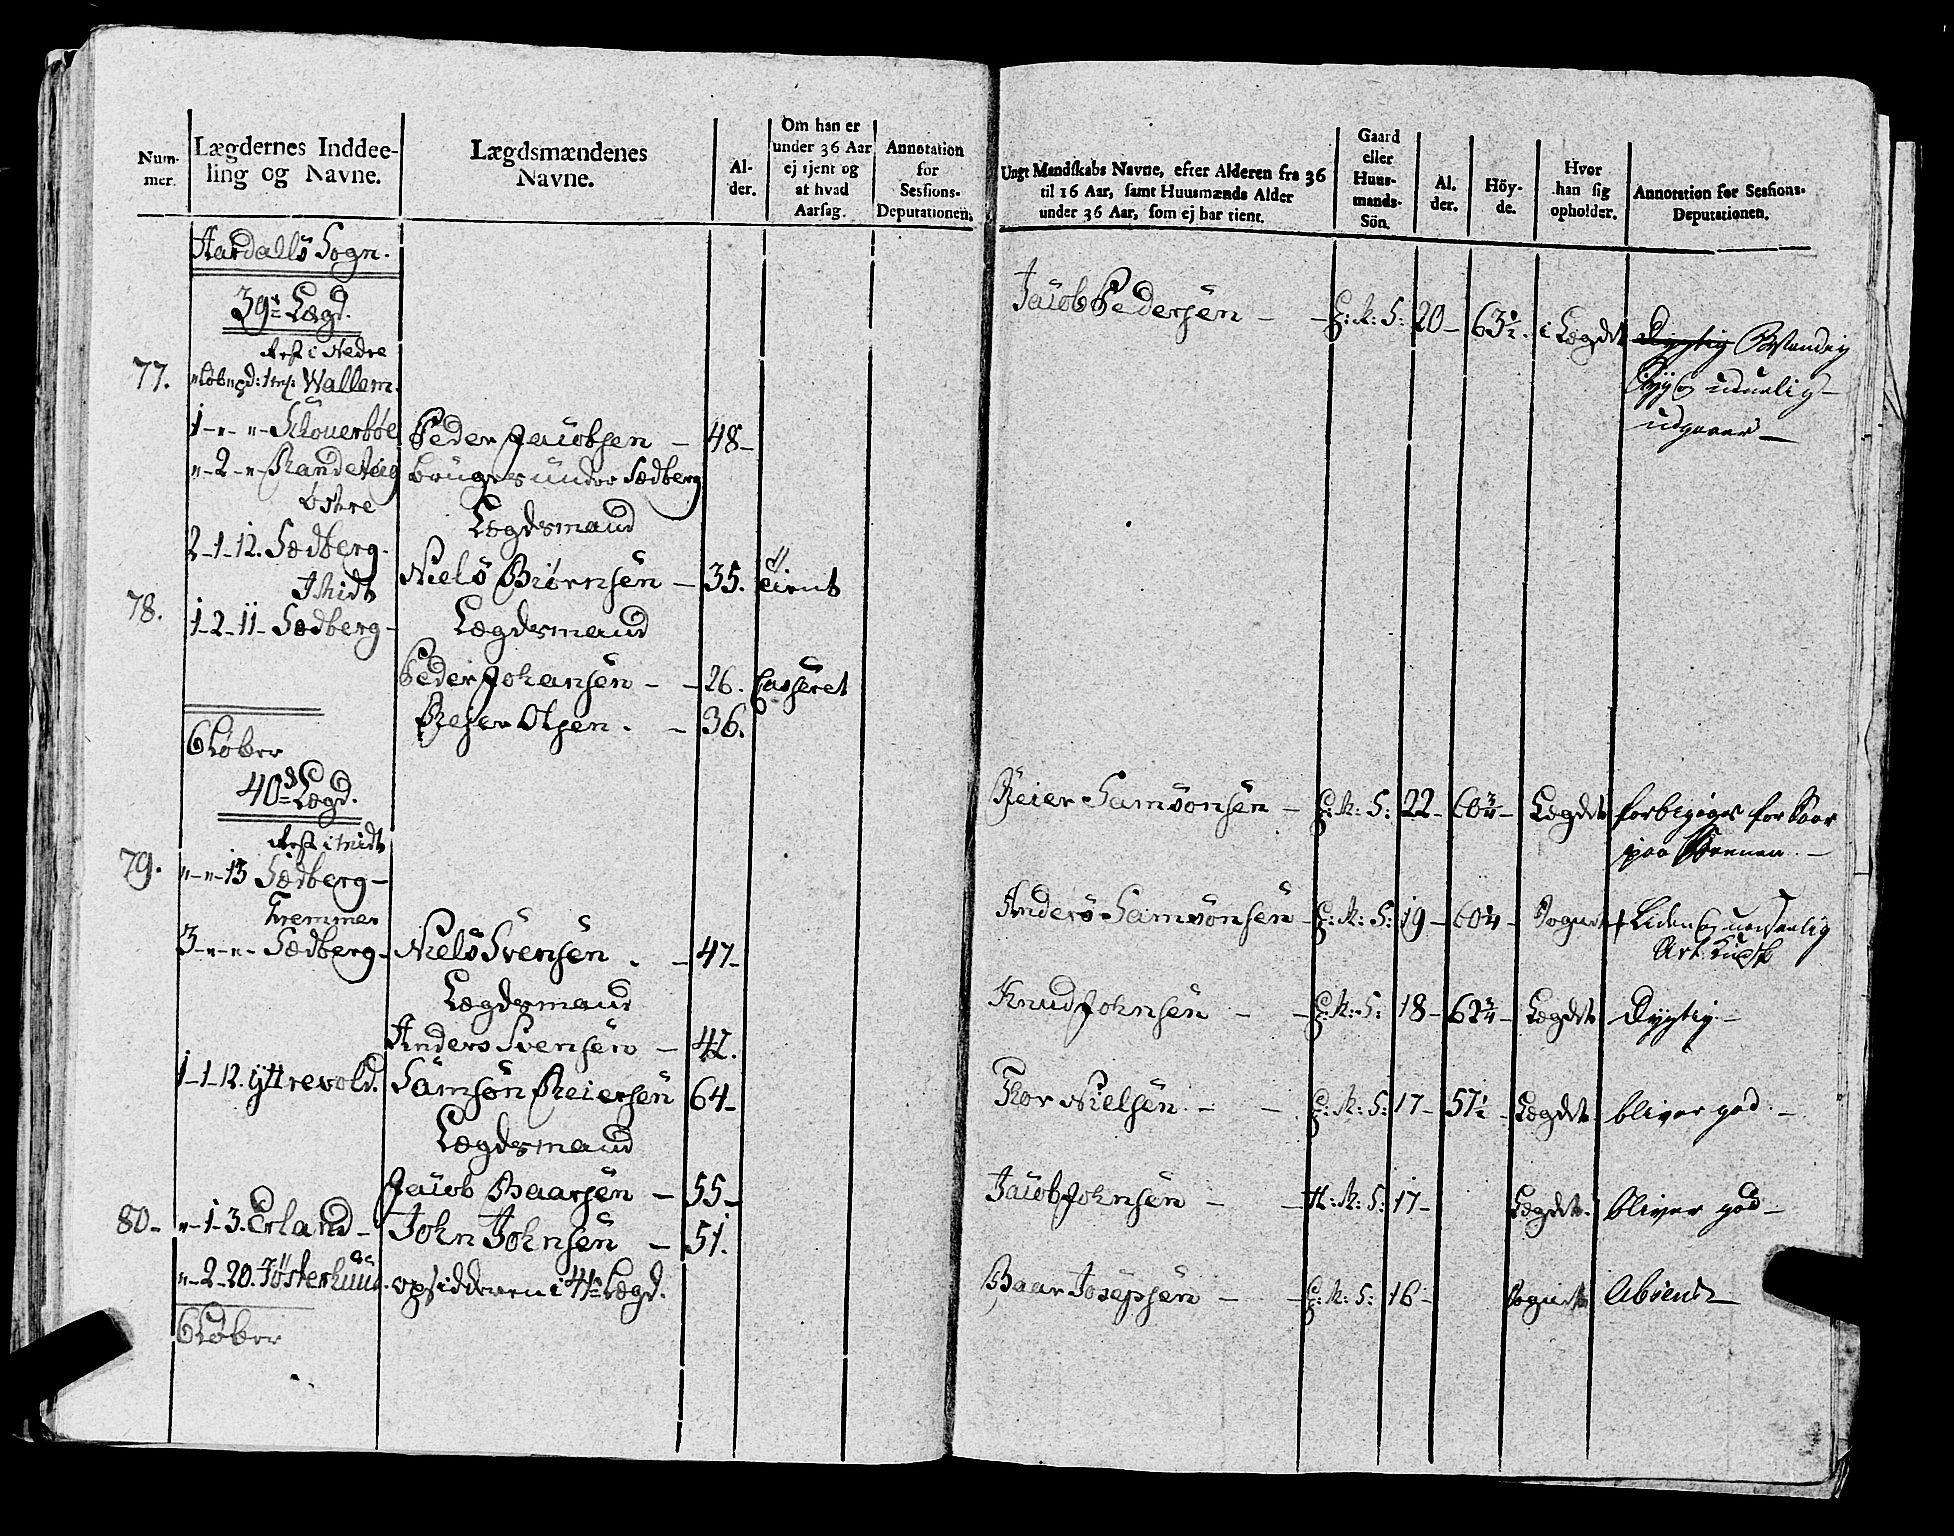 Num-
mer.
Lægdernes Inddee-
ling og Navne.
Lægdsmændenes
Navne.
Al-
der.
Om han er
under 36 Aar
ej tjent og
af hvad
Aarsag.
Annotation
for
Sessions-
Deputationen.
Aardalls Sogn.
39te Lægd.
77.
Rest i Nedre
Wallem.
1-"-"- Schouerbøe Peder Jacobsen - 48-
"-2-"- bruges under Sædberg
Østre Lægdsmand
2-1-12. Sædberg- Niels Biørnsen - 35. tient
Midt
78. 1-2-11- Sædberg- Lægdsmand
Peder Johansen - - 26. Casseret
Reier Olsen. - 36.
6 Løber
40de Lægd.
Rest i midt
79. "-"-13 Sædberg-
Fremmer
3-"-"- Sædberg- Niels Svensen . - 47-
Lægdsmand
Anders Svensen - 42.
1-1-12. Yttrevold. Samson Reiersen 64-
Lægdsmand
Jacob Baarsen - 55-
80- "-1-3. Erland- John Johnsen - 51.
"-2-20. opsidderen i Lægd.
6 Løber
Ungt Mandskabs Navne, efter Alderen fra 36
til 16 Aar, samt Huusmænds Alder
under 36 Aar, som ej har tient.
Gaard
eller
Huus-
mands-
Sön.
Al.
der.
Höy-
de.
Hvor
han sig
opholder.
Annotation for Sessions-
Deputationen.
Jacob Pedersen - - G: M: S: 20- 63½. i Lægdet Dygtig
uduelig-
udgaaer-
Reier Samsonsen - G: M: S: 22- 60¾- Lægdet forbigaaes for Saar
paa
Anders Samsonsen - G: M: S: 19- 60¼- Sognet Liden og uanseelig
Art. Kudsk
Knud Johnsen - - G: M: S: 18- 62¾- Lægdet Dygtig.-
Thor Nielsen. - - G: M: S: 17- 57½- Lægdet bliver god.-
Jacob Johnsen - - H: M: S: 17- Lægdet. bliver god-
Baar Josepsen - - G: M: S: 16- Sognet Absent-